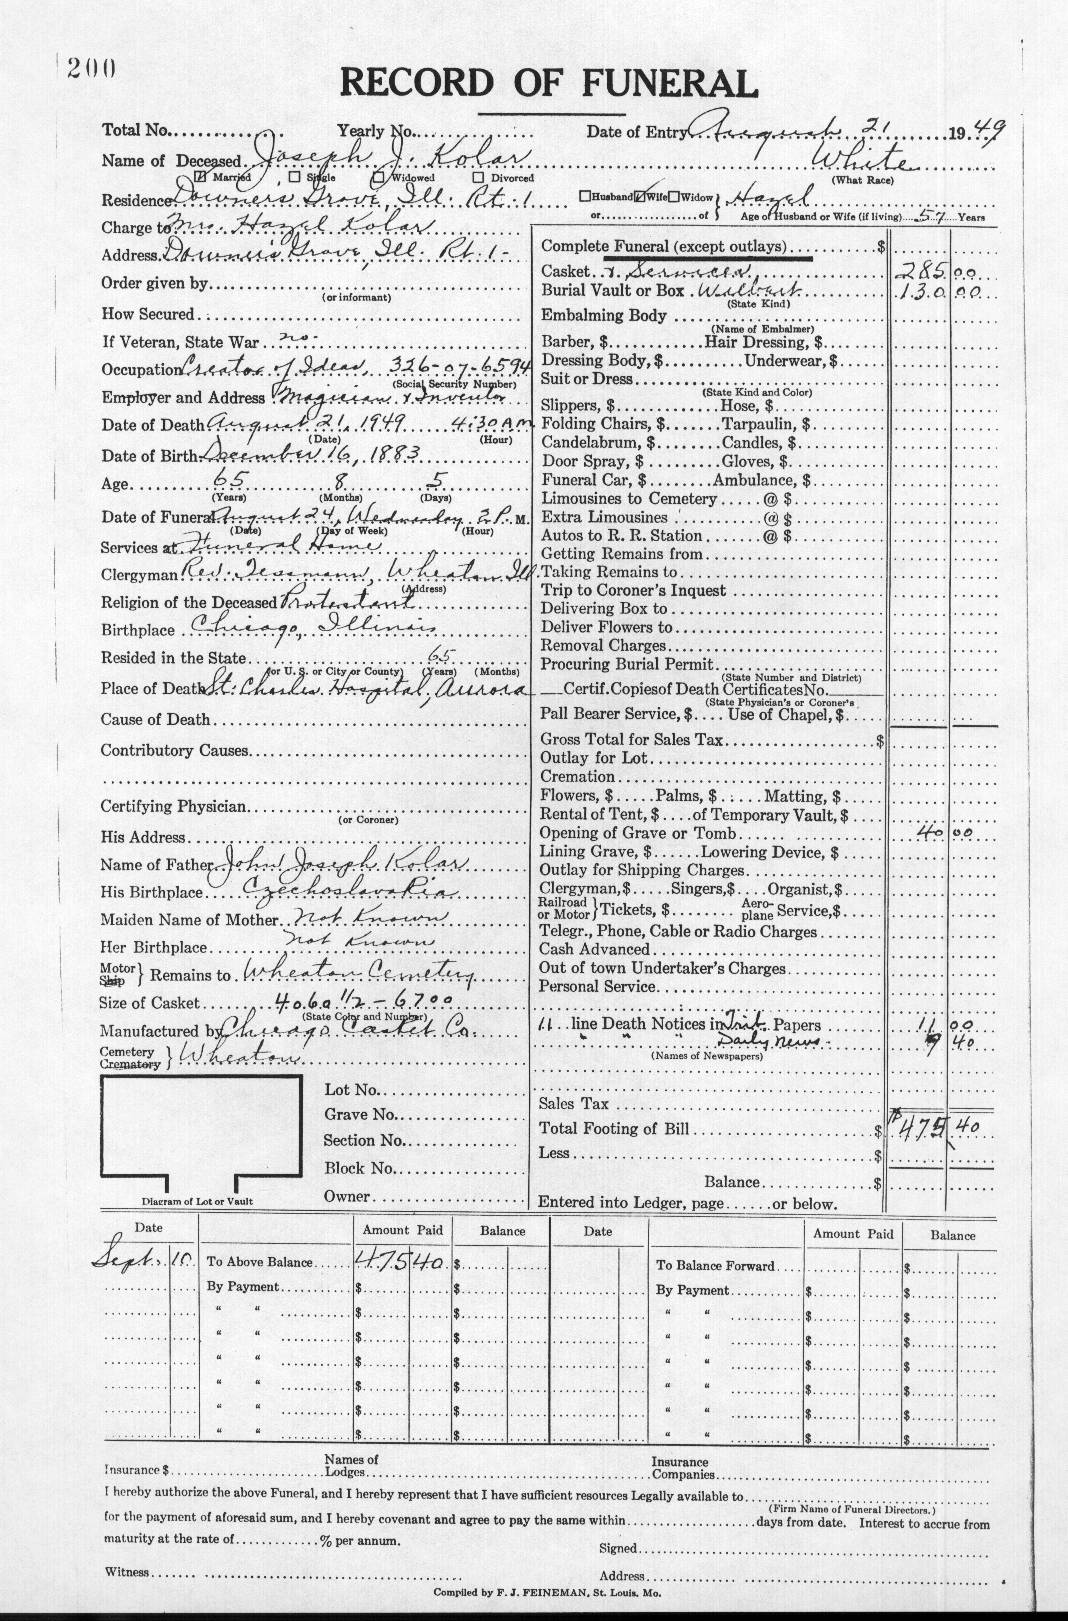 200
RECORD OF FUNERAL
Total No. Yearly No. Date of Entry August 21 1949
Name of Deceased Joseph J. Kolar White
Married Single Widowed Divorced (What Race)
Residence Downers Grove, Ill. Rt. 1 Husband Wife Widow } Hazel
or of Age of Husband or Wife (if living) 57 Years
Charge to Mrs. Hazel Kolar
Address Downers Grove, Ill. Rt. 1-
Order given by
(or informant)
How Secured
If Veteran, State War no-
Occupation Creator of Ideas, 326-07-6594
(Social Security Number)
Employer and Address Magician & Inventor
Date of Death August 21, 1949 4:30 A.M.
(Date) (Hour)
Date of Birth December 16, 1883
Age 65 8 5
(Years) (Months) (Days)
Date of Funeral August 24, Wednesday 2 P. M.
(Date) (Day of Week) (Hour)
Services at Funeral Home
Clergyman Rev. Tessmann, Wheaton Ill.
(Address)
Religion of the Deceased Protestant
Birthplace Chicago, Illinois
Resided in the State 65
(or U. S. or City or County) (Years) (Months)
Place of Death St. Charles Hospital, Aurora
Cause of Death
Contributory Causes
Certifying Physician
(or Coroner)
His Address
Name of Father John Joseph Kolar
His Birthplace Czechoslavakia
Maiden Name of Mother Not Known
Her Birthplace not known
Motor
Ship } Remains to Wheaton Cemetery
Size of Casket 4060 1/2 - 6700
(State Color and Number)
Manufactured by Chicago Casket Co.
Cemetery
Crematory } Wheaton
Lot No.
Grave No.
Section No.
Block No.
Owner
Diagram of Lot or Vault
Complete Funeral (except outlays) $
Casket & Services, 285 00
Burial Vault or Box Wilbert 130 00
(State Kind)
Embalming Body
(Name of Embalmer)
Barber, $ Hair Dressing, $
Dressing Body, $ Underwear, $
Suit or Dress
(State Kind and Color)
Slippers, $ Hose, $
Folding Chairs, $ Tarpaulin, $
Candelabrum, $ Candles, $
Door Spray, $ Gloves, $
Funeral Car, $ Ambulance, $
Limousines to Cemetery @ $
Extra Limousines @ $
Autos to R. R. Station @ $
Getting Remains from
Taking Remains to
Trip to Coroner's Inquest
Delivering Box to
Deliver Flowers to
Removal Charges
Procuring Burial Permit
(State Number and District)
Certif. Copies of Death Certificates No.
(State Physician's or Coroner's
Pall Bearer Service, $ Use of Chapel, $
Gross Total for Sales Tax $
Outlay for Lot
Cremation
Flowers, $ Palms, $ Matting, $
Rental of Tent, $ of Temporary Vault, $
Opening of Grave or Tomb 40 00
Lining Grave, $ Lowering Device, $
Outlay for Shipping Charges
Clergyman, $ Singers, $ Organist, $
Railroad
or Motor } Tickets, $ Aero-
plane Service, $
Telegr., Phone, Cable or Radio Charges
Cash Advanced
Out of town Undertaker's Charges
Personal Service
11 line Death Notices in Trib. Papers 11 00
" " " Daily News - 9 40
(Names of Newspapers)
Sales Tax
Total Footing of Bill $ $475 40
Less $
Balance $
Entered into Ledger, page or below.
Date Amount Paid Balance Date Amount Paid Balance
Sept. 10 To Above Balance 475 40 $ To Balance Forward $
By Payment $ $ By Payment $ $
" " $ $ " " $ $
" " $ $ " " $ $
" " $ $ " " $ $
" " $ $ " " $ $
" " $ $ " " $ $
" " $ $ " " $ $
Insurance $ Names of
Lodges Insurance
Companies
I hereby authorize the above Funeral, and I hereby represent that I have sufficient resources Legally available to
(Firm Name of Funeral Directors.)
for the payment of aforesaid sum, and I hereby covenant and agree to pay the same within days from date. Interest to accrue from
maturity at the rate of % per annum.
Signed
Witness Address
Compiled by F. J. FEINEMAN, St. Louis, Mo.